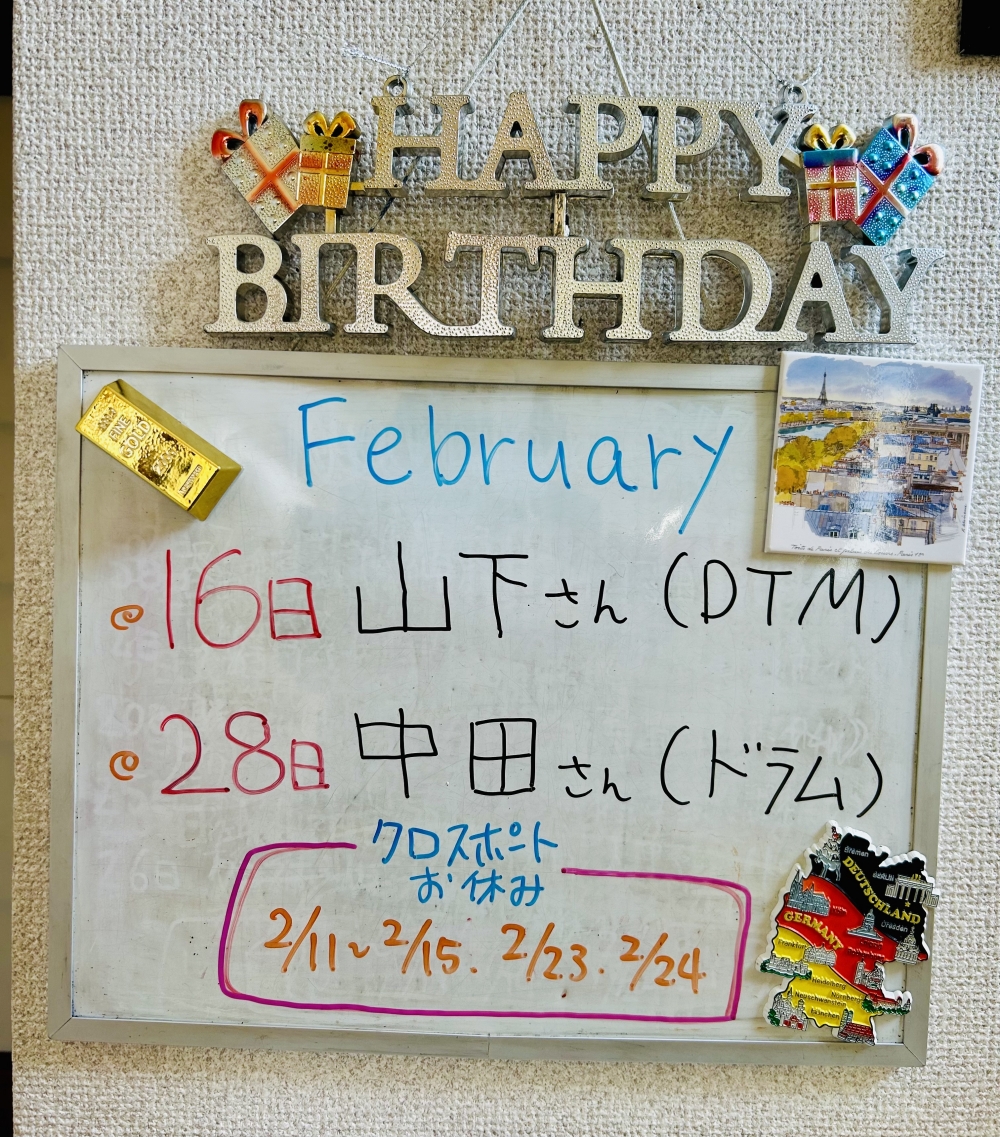 HAPPY
BIRTHDAY
FINE
GOLD
February
16日 山下さん (DTM)
28日 中田さん (ドラム)
クロスポート
お休み
2/11~2/15. 2/23. 2/24
Bremen
BERLIN
DEUTSCHLAND
Dresden
GERMANY
Frankfurt
Heidelberg
Nürnberg
Neuschwanstein
München